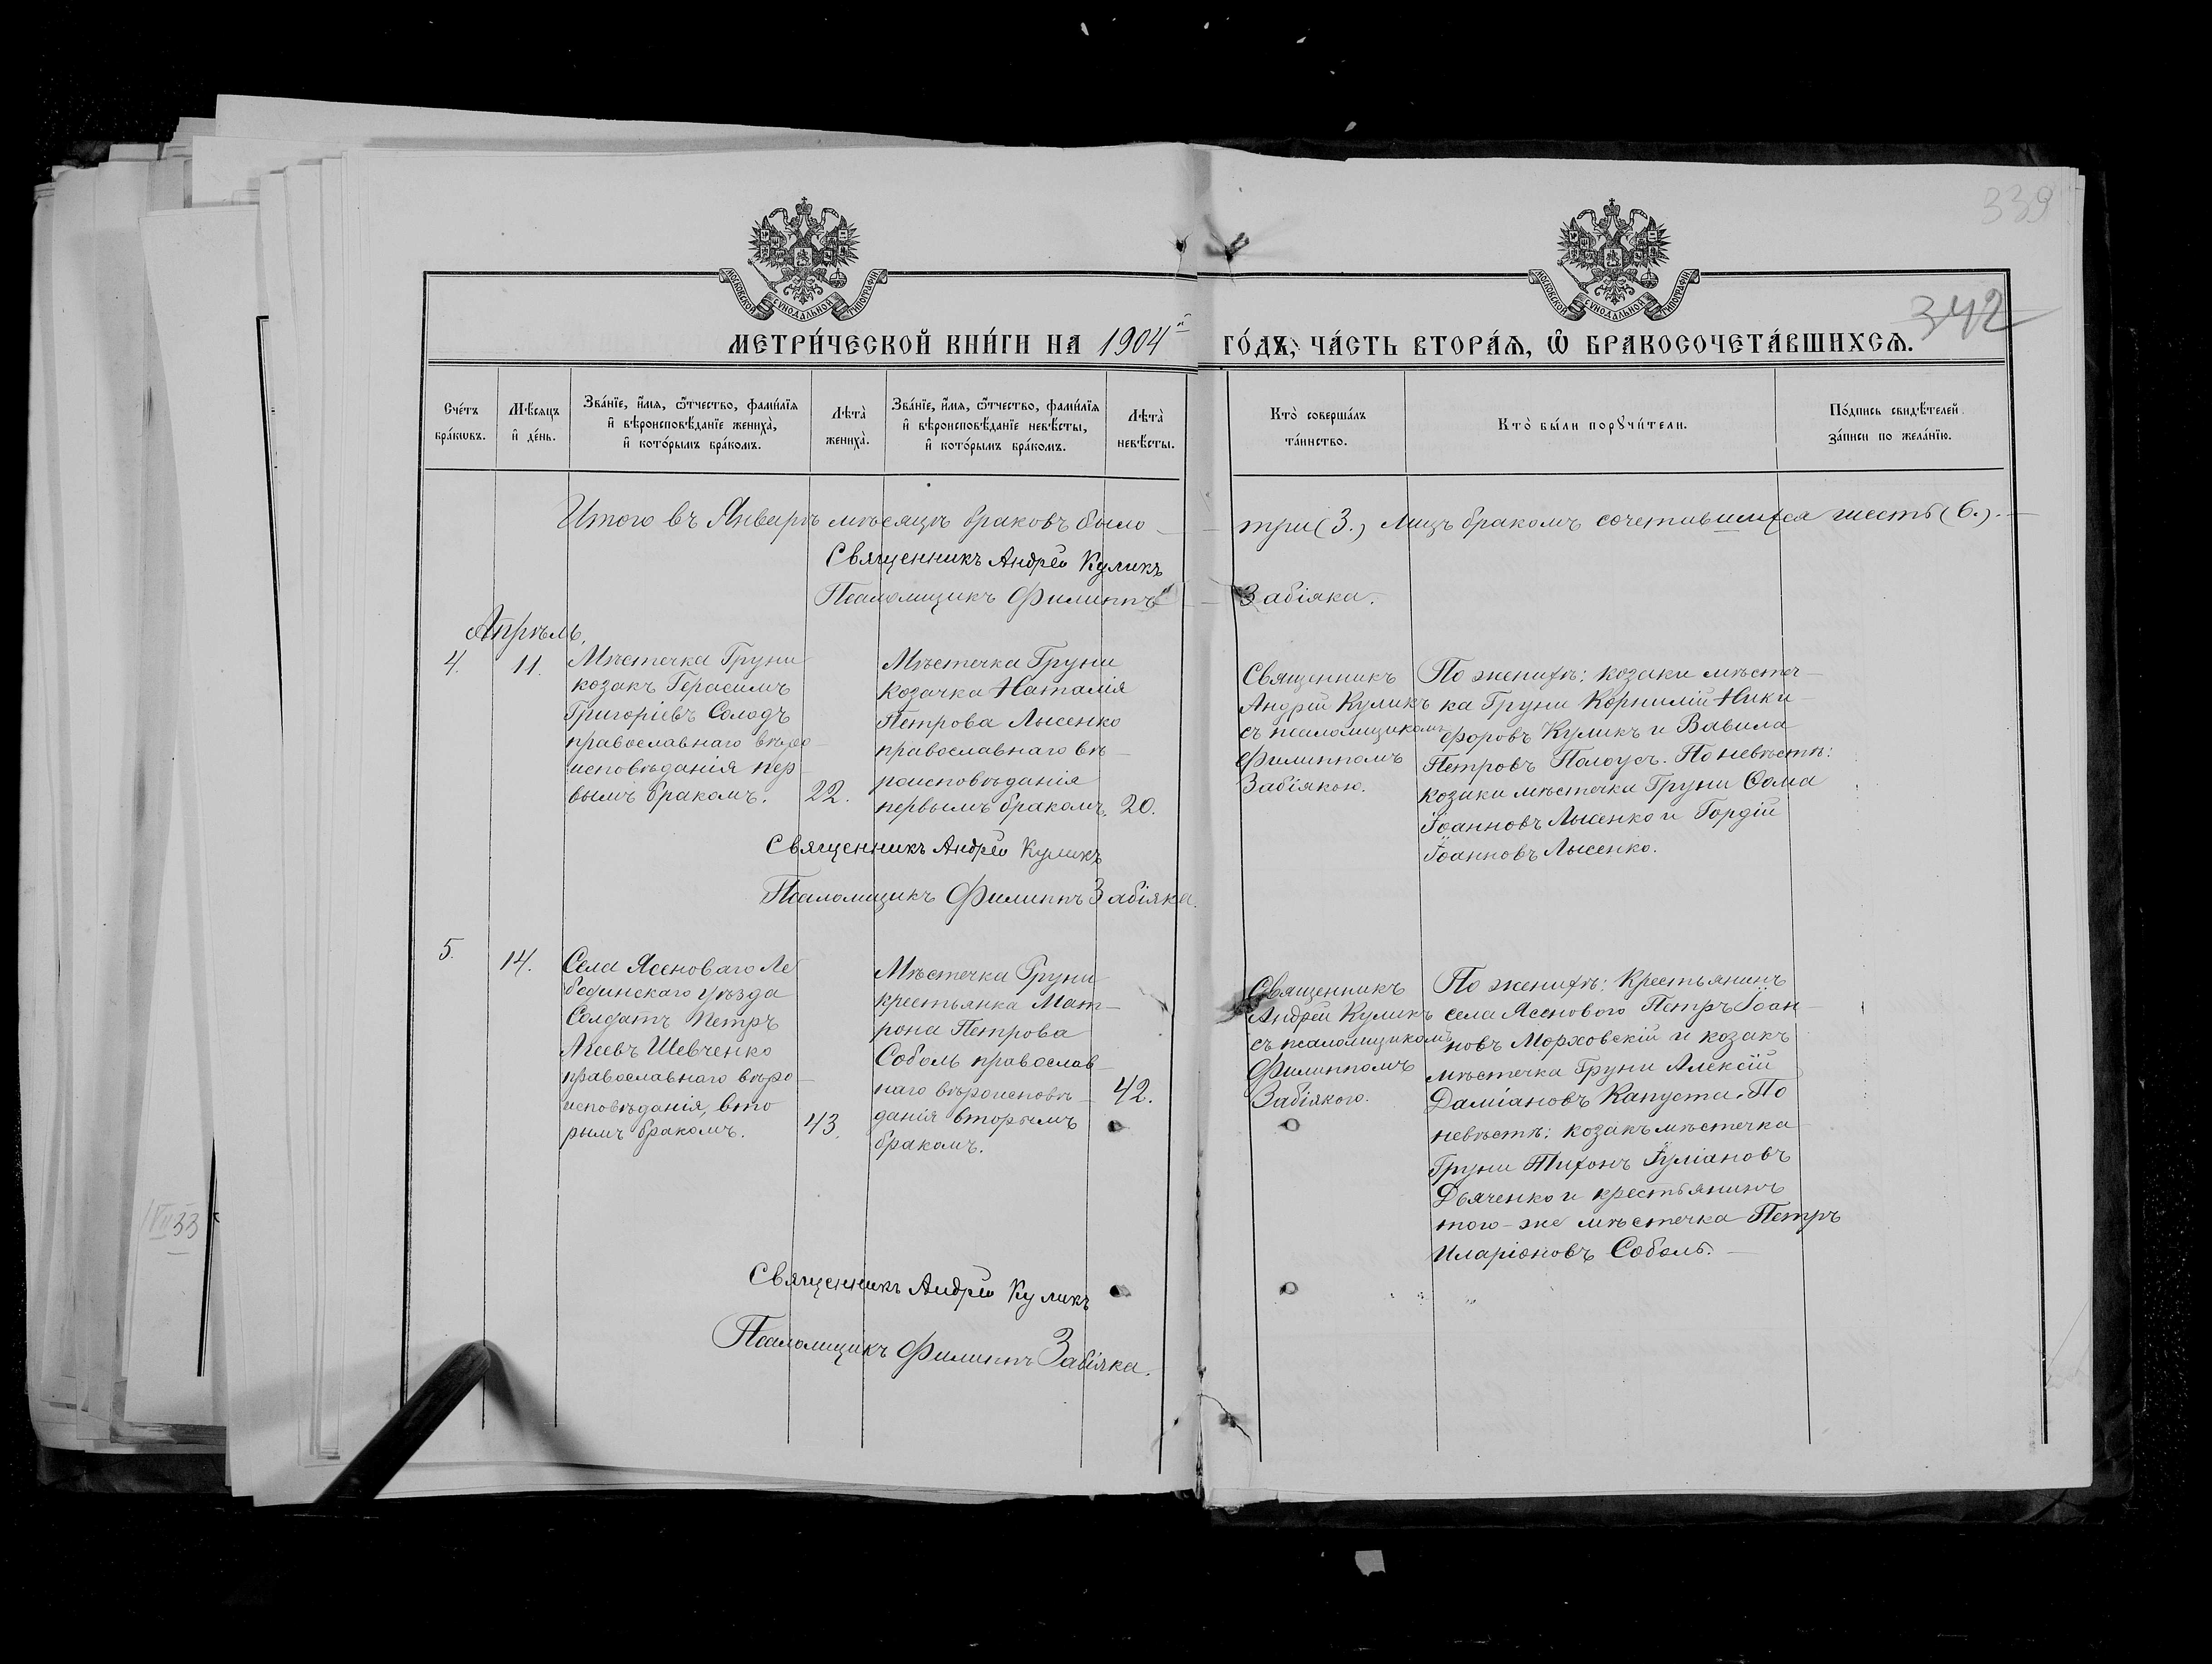 339
342
МОСКОВСКОЙ СѴНОДАЛЬНОЙ ТИПОГРАФІИ
МОСКОВСКОЙ СѴНОДАЛЬНОЙ ТИПОГРАФІИ
МЕТРИ́ЧЕСКОЙ КНИ́ГИ НА 1904й ГО́ДЪ, ЧА́СТЬ ВТОРА́Ѧ, Ѡ҆ БРАКОСОЧЕТА́ВШИХСѦ.
Сче́тъ
бра́кѡвъ.
Мѣ́сяцъ
и҆ де́нь.
Зва́нїе, и҆́мя, ѻ҆́тчество, фами́лїя
и҆ вѣроисповѣ́данїе жениха̀,
и҆ кото́рымъ бра́комъ.
Лѣта̀
жениха̀.
Зва́нїе, и҆́мя, ѻ҆́тчество, фами́лїя
и҆ вѣроисповѣ́данїе невѣ́сты,
и҆ кото́рымъ бра́комъ.
Лѣта̀
невѣ́сты.
Кто̀ соверша́лъ
та́инство.
Кто̀ бы́ли порꙋчи́тели.
По́дпись свидѣ́телей
за́писи по жела́нїю.
Итого въ Январѣ мѣсяцѣ браковъ было — три (3.) Лицъ бракомъ сочетавшихся шесть (6.). —
Священникъ Андрей Куликъ
Псаломщикъ Филиппъ — Забіяка.
Апрѣль.
4.
11.
Мѣстечка Груни
козакъ Герасимъ
Григоріевъ Солодъ
православнаго вѣро-
исповѣданія пер-
вымъ бракомъ.
22.
Мѣстечка Груни
козачка Наталія
Петрова Лысенко
православнаго вѣ-
роисповѣданія
первымъ бракомъ.
20.
Священникъ
Андрей Куликъ
съ псаломщикомъ
Филиппомъ
Забіякою.
По женихѣ: козаки мѣстеч-
ка Груни Корнилій Ники-
форовъ Куликъ и Вавила
Петровъ Полоусъ. По невѣстѣ:
козаки мѣстечка Груни Ѳома
Іоанновъ Лысенко и Гордій
Іоанновъ Лысенко.
Священникъ Андрей Куликъ
Псаломщикъ Филиппъ Забіяка.
5.
14.
Села Ясеноваго Ле-
бединскаго уѣзда
Солдатъ Петръ
Агеевъ Шевченко
православнаго вѣро-
исповѣданія, вто-
рымъ бракомъ.
43.
Мѣстечка Груни
крестьянка Мат-
рона Петрова
Соболь православ-
наго вѣроисповѣ-
данія вторымъ
бракомъ.
42.
Священникъ
Андрей Куликъ
съ псаломщикомъ
Филиппомъ
Забіякою.
По женихѣ: Крестьянинъ
села Ясенового Петръ Іоан-
новъ Морховскій и козакъ
мѣстечка Груни Алексій
Даміановъ Капуста. По
невѣстѣ: козакъ мѣстечка
Груни Тихонъ Іуліановъ
Дьяченко и крестьянинъ
того-же мѣстечка Петръ
Иларіоновъ Соболь. —
Священникъ Андрей Куликъ
Псаломщикъ Филиппъ Забіяка.